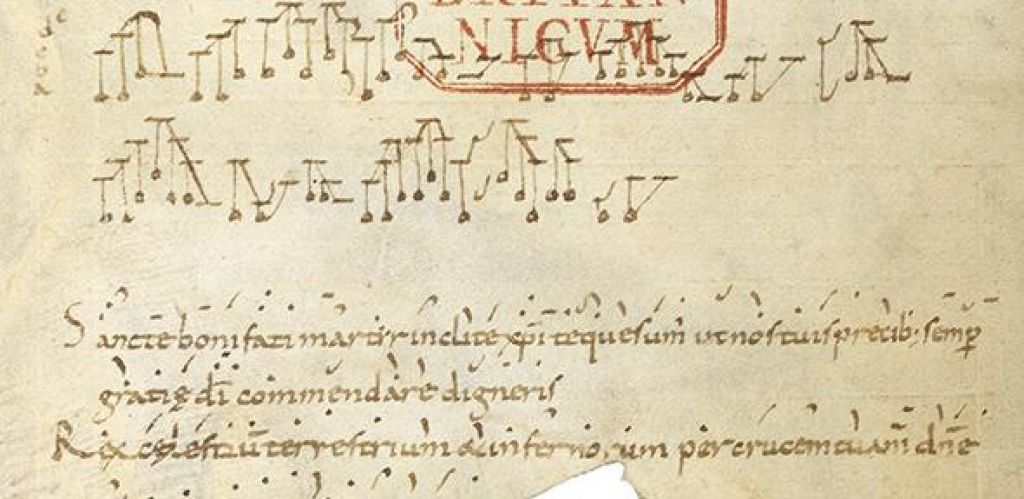 BRITAN
NICVM
Sancte bonifati martir inclite xp̄i te quesum̄ ut nos tuis precib; semꝑ
gratię dī commendare digneris
Rex cęlestiū terrestrium ac infernorum per crucem tuam dn̄e